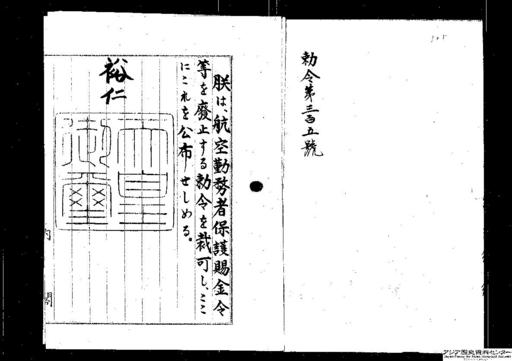 勅令第三百五號
朕は、航空勤務者保護賜金令
等を廢止する勅令を裁可し、ここ
にこれを公布せしめる。
裕仁
天皇
御璽
内閣
アジア歴史資料センター